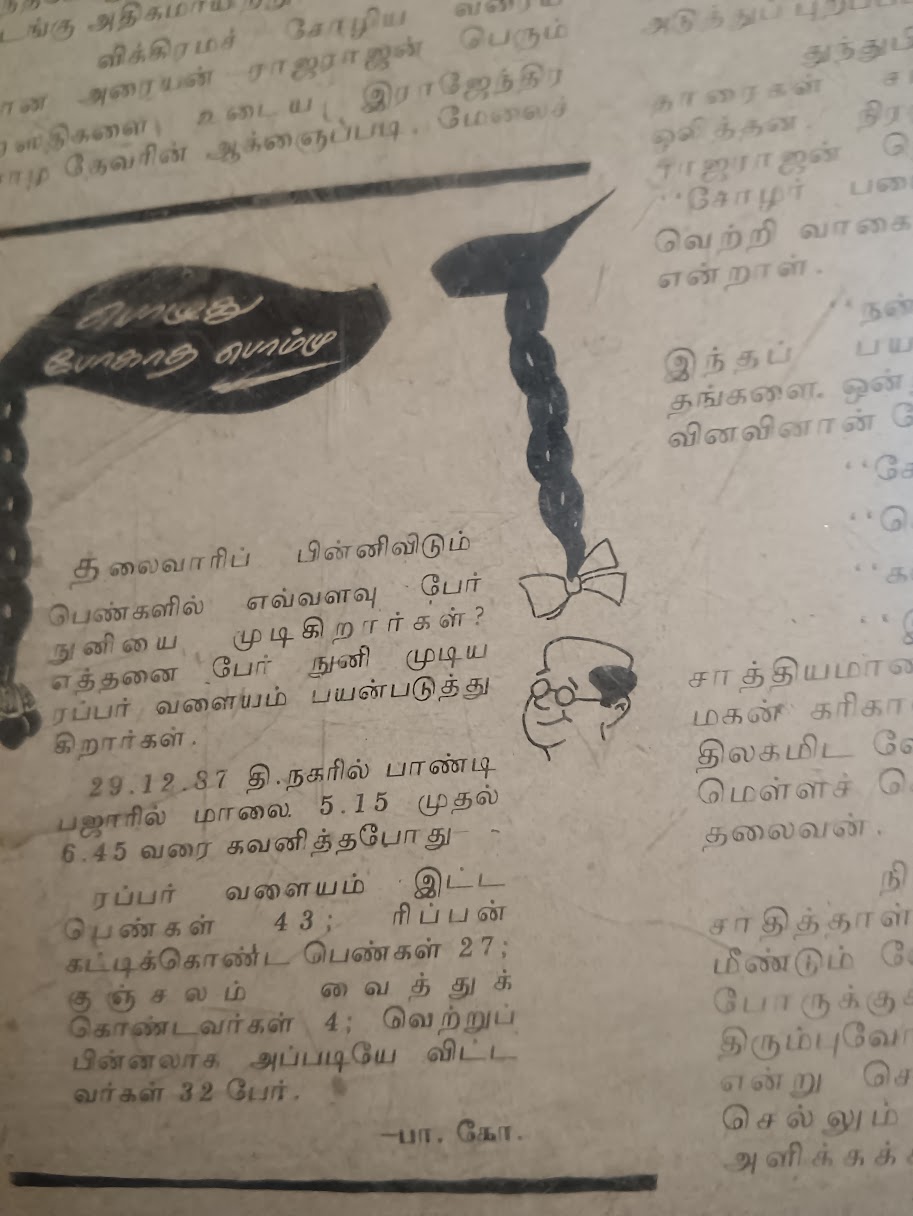 டங்கு அதிகமாயிற்று
விக்கிரமச் சோழிய வரைய
ான அரையன் ராஜராஜன் பெரும்
ரஸ்திகளை, உடைய, இராஜேந்திர
சோழ தேவரின் ஆக்ஞைப்படி, மேலைச்
பொழுது
போகாத பொம்மு
தலைவாரிப் பின்னிவிடும்
பெண்களில் எவ்வளவு பேர்
நுனியை முடிகிறார்கள்?
எத்தனை பேர் நுனி முடிய
ரப்பர் வளையம் பயன்படுத்து
கிறார்கள்.
29.12.87 தி.நகரில் பாண்டி
பஜாரில் மாலை 5.15 முதல்
6.45 வரை கவனித்தபோது—
ரப்பர் வளையம் இட்ட
பெண்கள் 43; ரிப்பன்
கட்டிக்கொண்ட பெண்கள் 27;
குஞ்சலம் வைத்துக்
கொண்டவர்கள் 4; வெற்றுப்
பின்னலாக அப்படியே விட்ட
வர்கள் 32 பேர்.
—பா. கோ.
அடுத்துப்
துந்துபி
தாரைகள்
ஒலித்தன.
ராஜராஜன்
“சோழர்
வெற்றி வாகை
என்றாள்.
“நன்
இந்தப் பய
தங்களை. ஒன்
வினவினான்
“சே
“கு
சாத்தியமான
மகன் கரிகா
திலகமிட
மெள்ளச்
தலைவன்.
நி
சாதித்தாள்
மீண்டும்
போருக்கு
திரும்புவோ
என்று செ
செல்லும்
அளிக்கக்